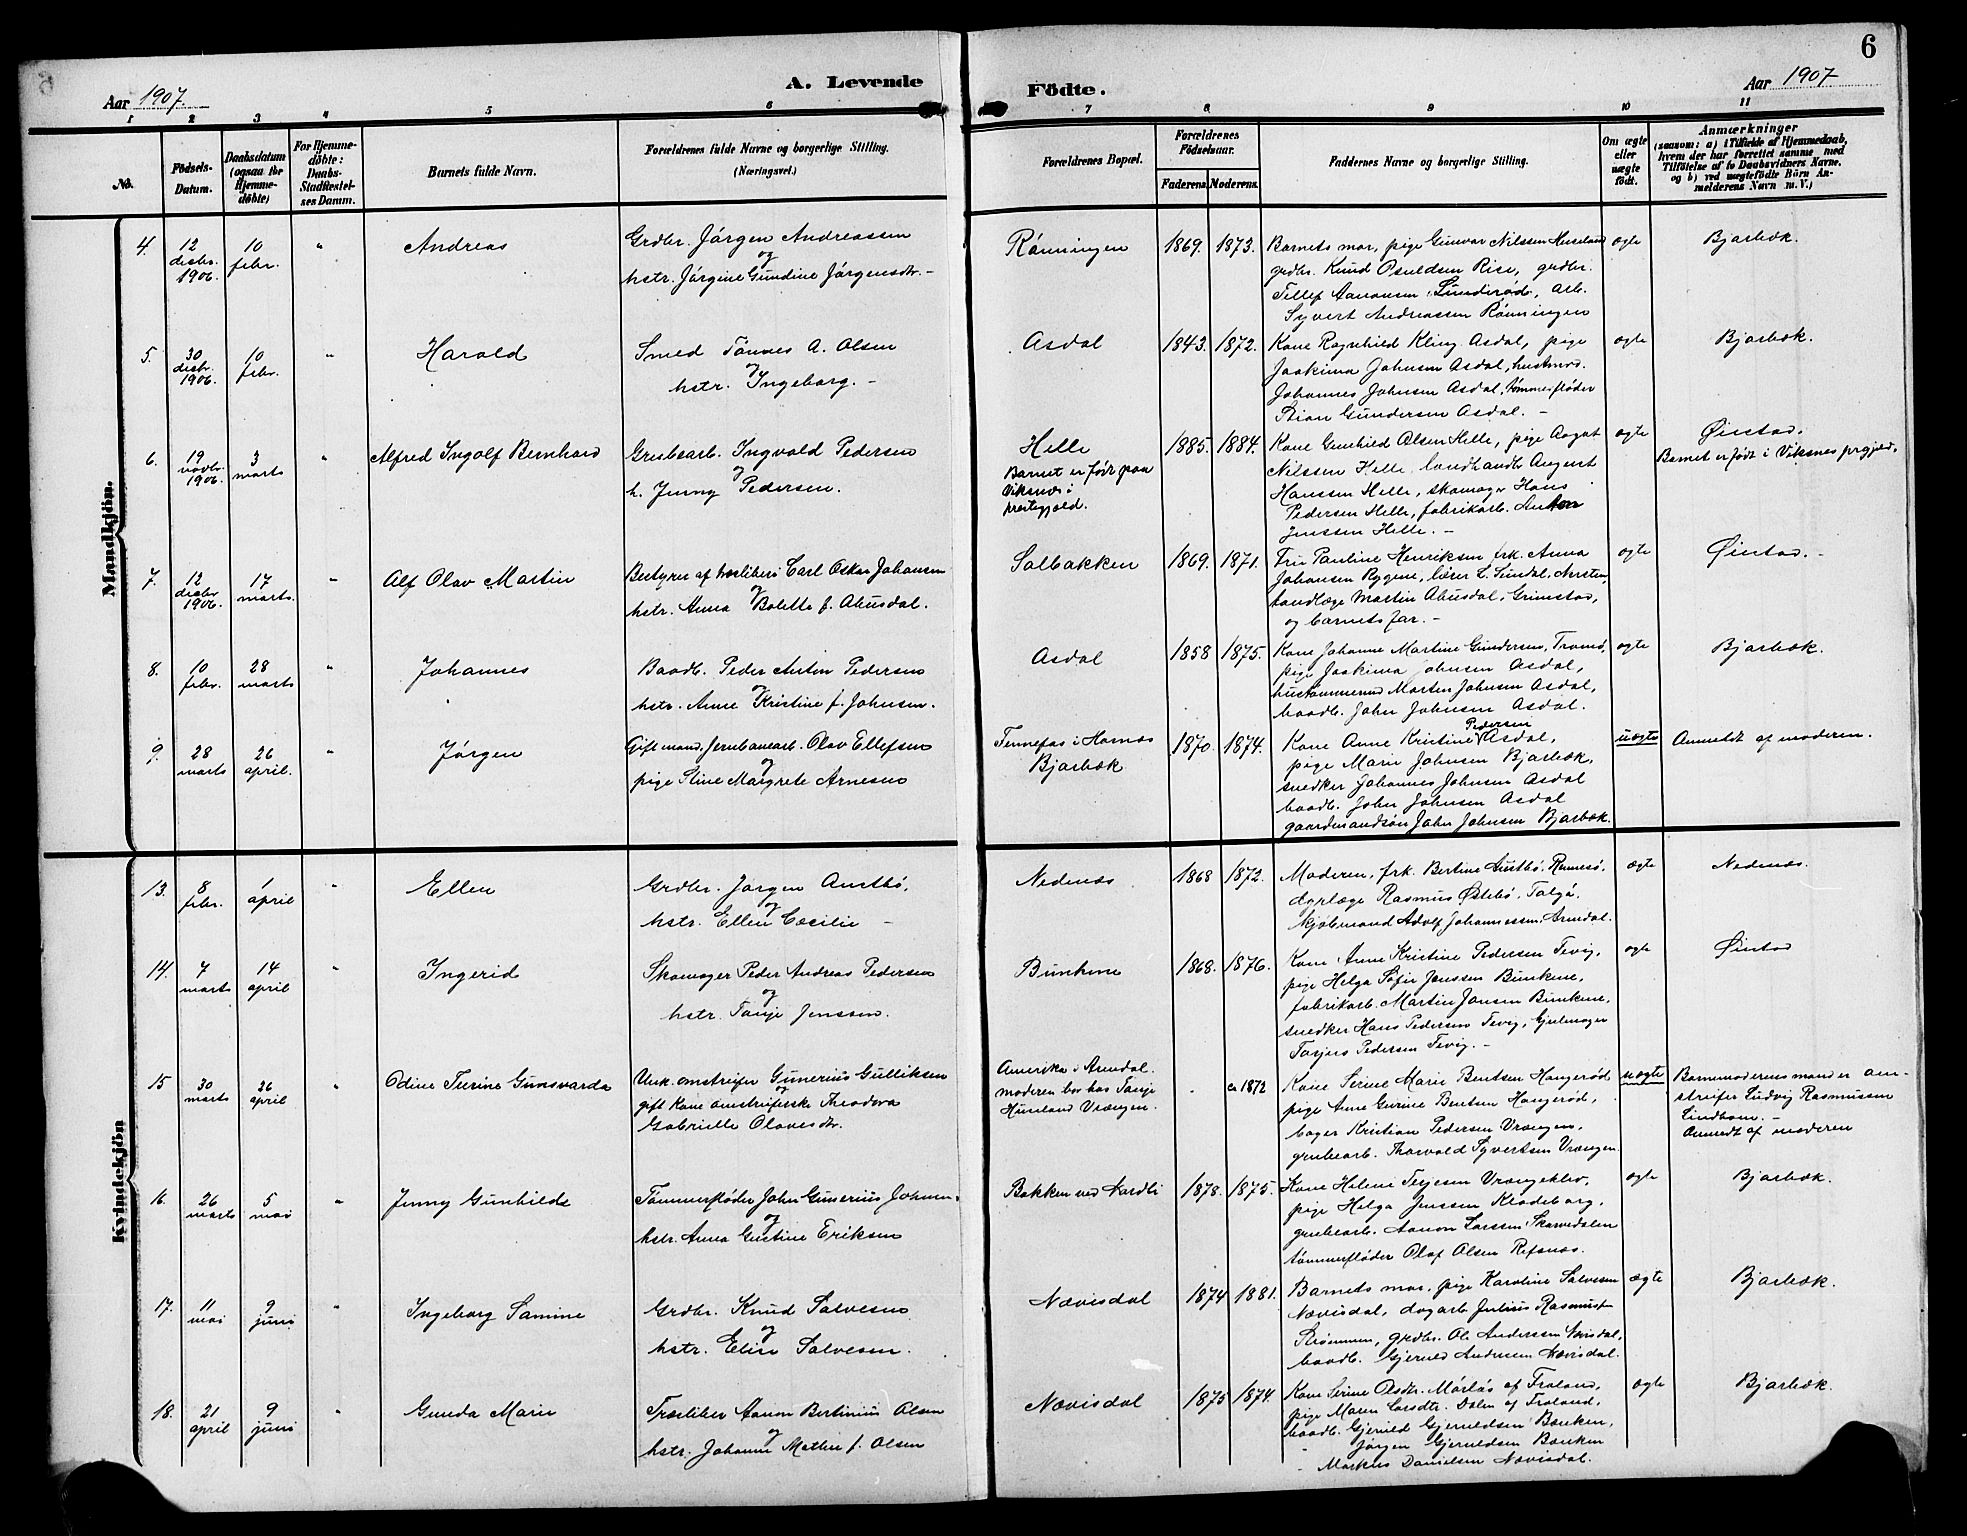 6
Aar 1907.
A. Levende Födte.
Aar 1907
1 2 3 4 5 6 7 8 9 10 11
No.
Födsels-Datum.
Daabsdatum (ogsaa for Hjemmedøbte)
For Hjemmedøbte: Daabs-Stadfæstelses Datum.
Barnets fulde Navn.
Forældrenes fulde Navne og borgerlige Stilling. (Næringsvei.)
Forældrenes Bopæl.
Forældrenes Födselsaar.
Faderens. Moderens.
Faddernes Navne og borgerlige Stilling.
Om ægte eller uægte födt.
Anmærkninger
(saasom: a) i Tilfælde af Hjemmedaab, hvem der har forrettet samme med Tilföielse af to Daabsvidners Navne, og b) ved uægtefödte Börn Anmelderens Navn m. V.)
Mandkjön.
4. 12 desbr. 1906. 10 febr. " Andreas
Grdbr. Jörgen Andreassen
og
hstr. Jörgine Gundine Jörgensdtr. -
Rönningen 1869. 1873.
Barnets mor, pige Gunvor Nilssen Huseland
grdbr. Knud Osuldsen Rise, grdbr.
Tellef Aanonsen Lunderöd, arb.
Syvert Andreassen Rönningen
ægte Bjorbæk.
5. 30 desbr. 1906. 10 febr. " Harald
Smed Tönnes A. Olsen
og
hstr. Ingeborg. -
Asdal 1843. 1872.
Kone Ragnhild Kling Asdal, pige
Joakima Johnsen Asdal, hustmrs.
Johannes Johnsen Asdal, tömmerflöder
Stian Gundersen Asdal. -
ægte Bjorbæk.
6. 19 novbr. 1906. 3 marts " Alfred Ingolf Bernhard
Grubearb. Ingvald Pedersen
og
h. Jenny Pedersen.
Helle
Barnet er födt paa
Viksnes i
prestegjeld.
1885. 1884.
Kone Gunhild Olsen Helle, pige Aagot
Nilssen Helle, landhandl. August
Hanssen Helle, skomager Hans
Pedersen Helle, fabrikarb. Anton
Jenssen Helle. -
ægte Øiestad.
Barnet er födt i Viksnes prgjeld.
7. 12 desbr. 1906. 17 marts. " Alf Olav Martin
Bestyrer af træsliberi Carl Oskar Johansen
og
hstr. Anna Bolette f. Abusdal.
Solbakken 1869. 1871.
Fru Pauline Henriksen, frk. Anna
Johansen Rygene, lærer L. Sundal, Nersten,
tandlæge Martin Abusdal, Grimstad,
og barnets far. -
ægte Øiestad. -
8. 10 febr. 28 marts " Johannes
Baadb. Peder Anton Pedersen
og
hstr. Anne Kristine f. Johnsen.
Asdal 1858 1875.
Kone Johanne Martine Gundersen, Tromö,
pige Joakima Johnsen Asdal,
hustömmermd Morten Johnsen Asdal,
baadb. John Johnsen Asdal.
ægte Bjorbæk.
9. 28 marts 26 april. Jörgen
Gift mand, jernbanearb. Olav Ellefsen
og
pige Stine Margrete Arnesen
Tennefos i Hornes
Bjorbæk
1870. 1874.
Kone Anne Kristine Pedersen Asdal,
pige Marie Johnsen Bjorbæk,
snedker Johannes Johnsen Asdal
baadb. John Johnsen Asdal
gaardmandsön John Johnsen Bjorbæk.
uægte Anmeldt af moderen.
Kvindekjön
13. 8 febr. 1 april " Ellen
Grdbr. Jörgen Austbö,
og
hstr. Ellen Cæcilie -
Nedenes 1868 1872.
Moderen, frk. Bertine Austbö, Rennesö,
dyrlæge Rasmus Østebö, Talgö.
kjöbmand Adolf Johannessen, Arendal.
ægte Nedenes.
14. 7 marts 14 april " Ingerid
Skomager Peder Andreas Pedersen
og
hstr. Tonje Jenssen.
Bunkene 1868. 1876.
Kone Anne Kristine Pedersen Fevig,
pige Helga Sofie Jenssen Bunkene,
fabrikarb. Martin Jensen Bunkene,
snedker Hans Pedersen Fevig, Gjulmager
Torjus Pedersen Fevig. -
ægte Øiestad
15 30 marts 26 april " Odine Turine Gunsvarda
Unk. omstreifer Gunerius Gulliksen
og
gift kone omstreiferske Theodora
Gabrielle Olavesdtr.
Amerika i Arendal.
moderen bor hos Tonje
Huseland Vrængen.
- ca 1872
Kone Serine Marie Bentsen Hangeröd
pige Anne Gurine Bentsen Hangeröd,
bager Kristian Pedersen Vrængen,
grubearb. Thorvald Syvertsen Vrængen.
uægte Barnemoderens mand er om-
streifer Ludvig Rasmussen
Lindhom. -
Anmeldt af moderen
16. 26 marts 5 mai " Jenny Gunhilda
Tömmerflöder John Gunerius Johnsen.
og
hstr. Anna Gustine Eriksen
Bakken ved Nordli 1878. 1875.
Kone Helene Terjesen Vrængeklev,
pige Helga Jenssen Klodeborg,
grubearb. Aanon Larssen Skarvedalen
tömmerflöder Olaf Olsen Refsnes.
ægte Bjorbæk.
17. 11 mai 9 juni " Ingeborg Samine
Grdbr. Knud Salvesen
og
hstr. Elise Salvesen.
Nævisdal 1874 1881.
Barnets mor, pige Karoline Salvesen
Nævisdal, dagarb. Julius Rasmussen
Strömmen, grdbr. Ole Anderssen Nævisdal,
baadb. Gjeruld Andersen Nævisdal.
ægte Bjorbæk.
18. 21 april 9 juni " Gunda Marie
Træsliber Aanon Bertinius Olsen
og
hstr. Johanne Mathie f. Olsen
Nævisdal 1875 1874.
Kone Serine Olsdtr. Mörlös af Froland,
pige Maren Larsdtr. Dalen af Froland,
baadb. Gjeruld Gjeruldsen Bænken,
" Jörgen Gjeruldsen Bænken
- Markus Danielsen Nævisdal.
ægte Bjorbæk.